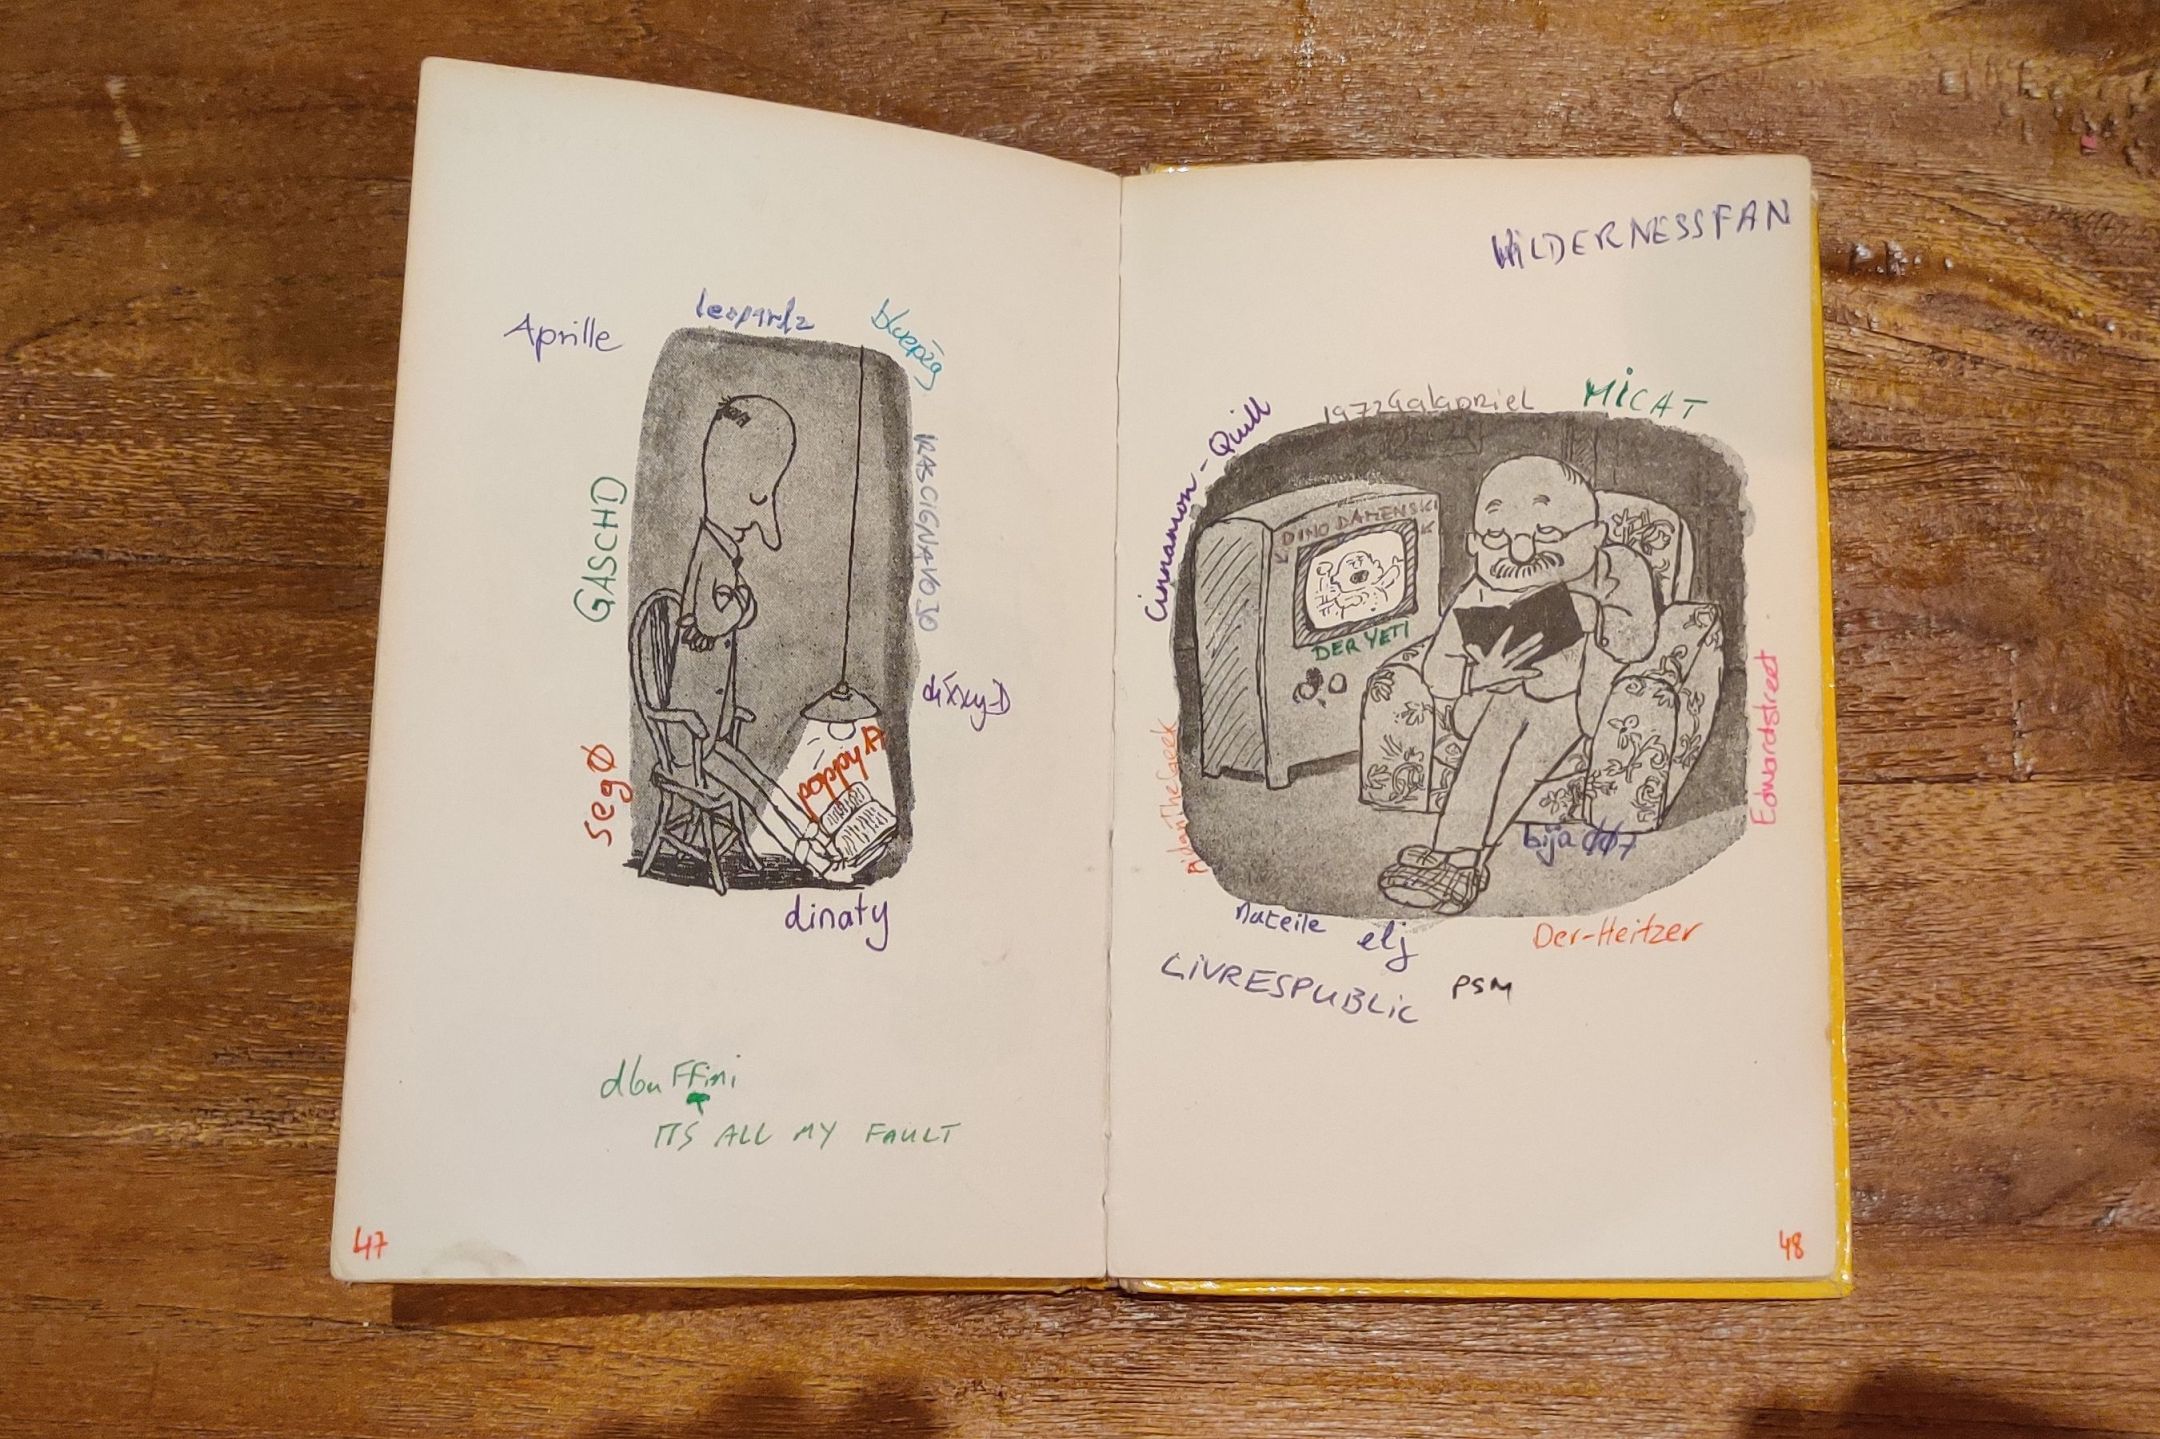 Aprille
leopardz
bluepzg
GASCHD
RASCIGNAVOJO
dixxy-D
segØ
dinaty
dbuFFini
ITS ALL MY FAULT
47
WILDERNESSFAN
1972Gakapriel
MICAT
Cinnamon-Quill
DINO DAMENSKI
DER YETI
Edwardstreet
AidanTheGeek
bijaØØ7
nateile
elj
Der-Heitzer
LiVRESPUBLiC
PSM
48